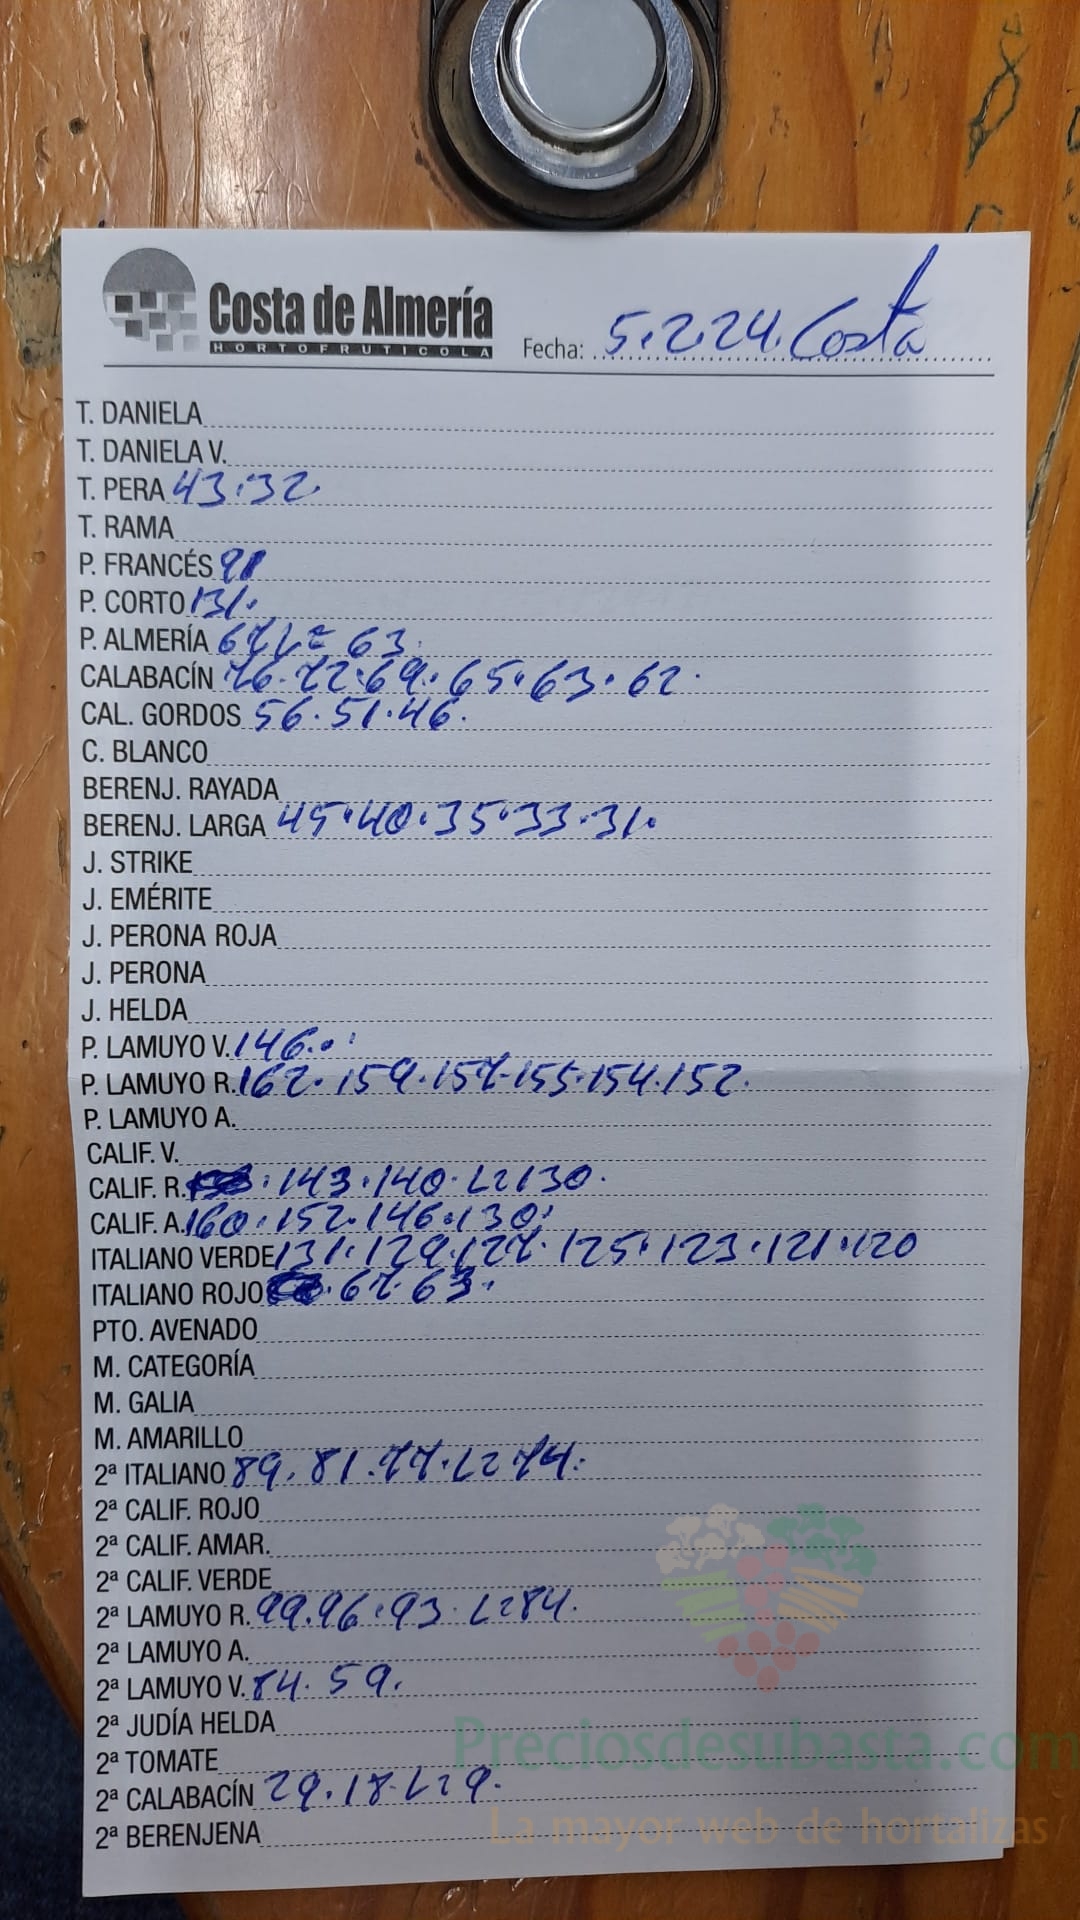 Costa de Almería
HORTOFRUTICOLA
Fecha: 5.2.24. Costa
T. DANIELA
T. DANIELA V.
T. PERA 43.32.
T. RAMA
P. FRANCÉS 91
P. CORTO 131.
P. ALMERÍA 67 L= 63.
CALABACÍN 76.72.69.65.63.62.
CAL. GORDOS 56.51.46.
C. BLANCO
BERENJ. RAYADA
BERENJ. LARGA 45.40.35.33.31.
J. STRIKE
J. EMÉRITE
J. PERONA ROJA
J. PERONA
J. HELDA
P. LAMUYO V. 146.
P. LAMUYO R. 162.159.157.155.154.152.
P. LAMUYO A.
CALIF. V.
CALIF. R. .143.140. L2130.
CALIF. A. 160.152.146.130.
ITALIANO VERDE 131.129.127.125.123.121.120
ITALIANO ROJO .67.63.
PTO. AVENADO
M. CATEGORÍA
M. GALIA
M. AMARILLO
2ª ITALIANO 89.81.77. L2 74.
2ª CALIF. ROJO
2ª CALIF. AMAR.
2ª CALIF. VERDE
2ª LAMUYO R. 99.96.93. L284.
2ª LAMUYO A.
2ª LAMUYO V. 84.59.
2ª JUDÍA HELDA
2ª TOMATE
2ª CALABACÍN 29.18. L29.
2ª BERENJENA
Preciosdesubasta.com
La mayor web de hortalizas